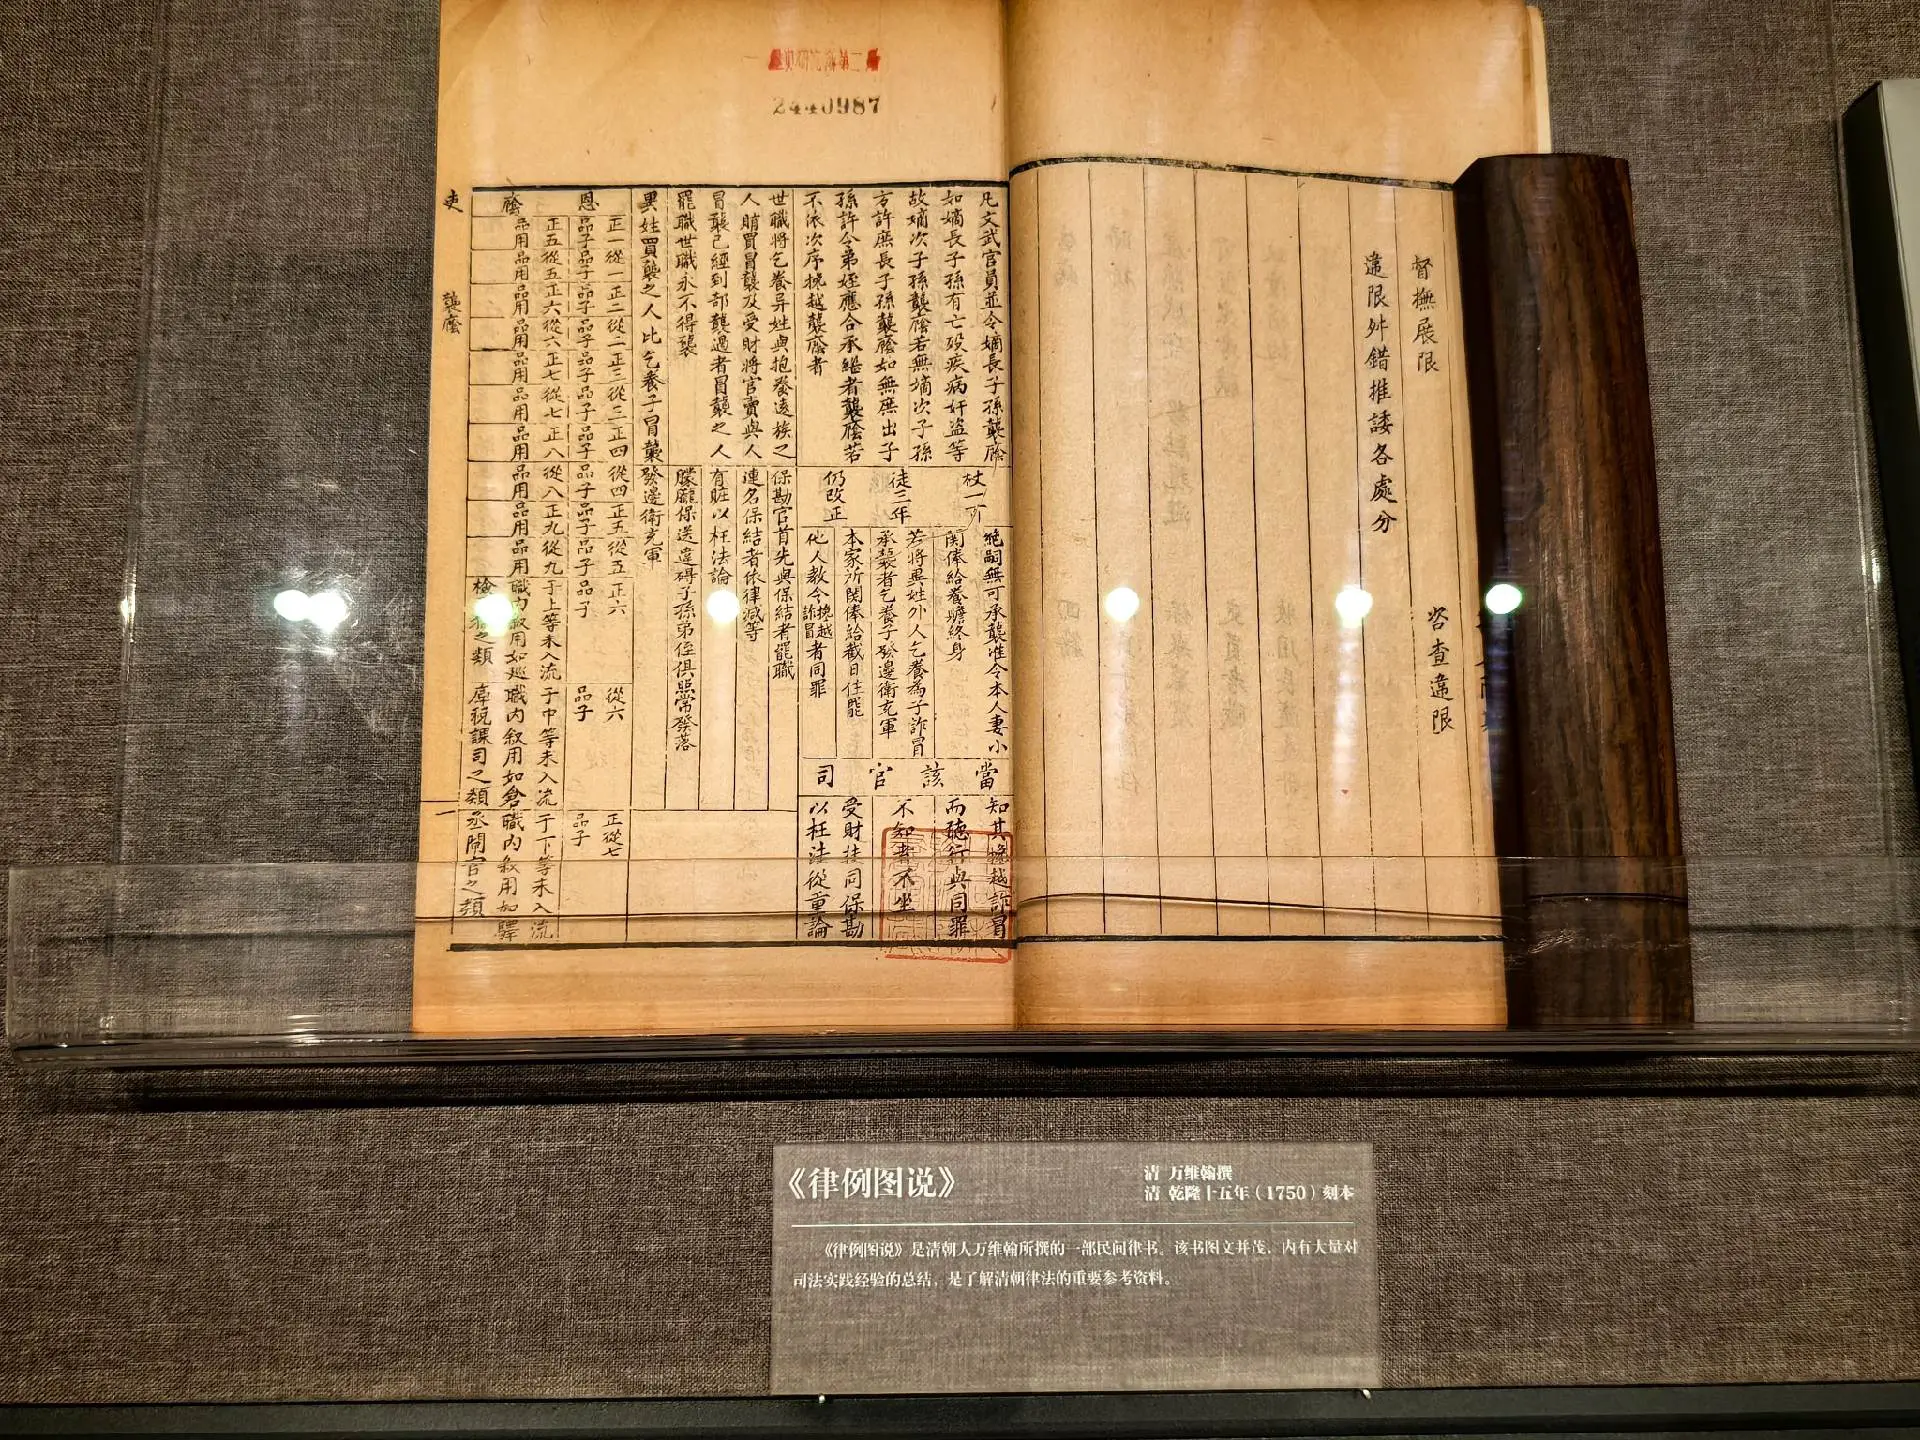 2440987
督撫展限
咨查違限
違限舛錯推諉各處分
凡文武官員並令嫡長子孫襲廕
如嫡長子孫有亡殁疾病奸盜等
故嫡次子孫襲廕若無嫡次子孫
方許庶長子孫襲廕如無庶出子
孫許令弟姪應合承繼者襲廕若
不依次序搀越襲廕者
杖一百
徒三年
仍改正
絕嗣無可承襲准令本人妻小
関俸給養贍終身
若將異姓外人乞養為子詐冒
承襲者乞養子發邊衛充軍
本家所関俸給截日住罷
他人教令搀越詐冒者同罪
當該官司
知其搀越詐冒
而聽行與同罪
不知者不坐
受財扶同保勘
以枉法從重論
世職將乞養异姓與抱養遠族之
人賄買冒襲及受財將官賣與人
冒襲已經到部襲過者冒襲之人
罷職世職永不得襲
保勘官首先與保結者罷職
連名保結者依律減等
有賍以枉法論
朦朧保送違碍子孫弟侄俱照常發落
異姓買襲之人比乞養子冒襲發邊衛充軍
恩
廕
正一從一正二從二正三從三正四從四正五從五正六
品子品子品子品子品子品子品子品子品子品子品子
從六
品子
正從七
品子
正五從五正六從六正七從七正八從八正九從九
品用品用品用品用品用品用品用品用品用品用
于上等未入流
職內敘用如巡
檢
之類
于中等未入流
職内叙用如倉
庫税課司之類
于下等未入流
職內敘用如驛
丞閘官之類
吏
襲廕
一
《律例图说》
清 万维翰撰
清 乾隆十五年（1750）刻本
《律例图说》是清朝人万维翰所撰的一部民间律书。该书图文并茂，内有大量对
司法实践经验的总结，是了解清朝律法的重要参考资料。